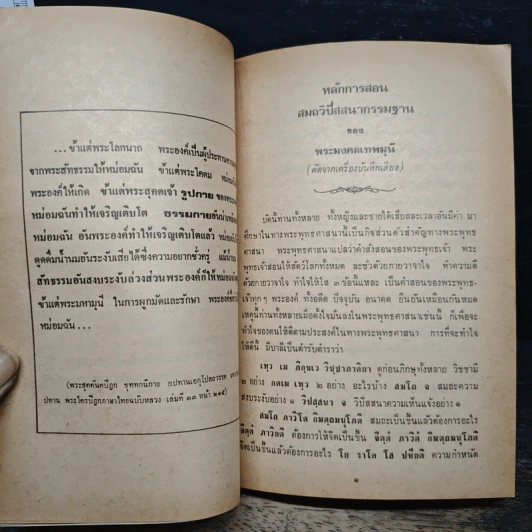 ...ข้าแต่พระโลกนาถ พระองค์เป็นผู้ประทานความ
จากพระสัทธรรมให้หม่อมฉัน ข้าแต่พระโคดม หม่อมฉัน
พระองค์ให้เกิด ข้าแต่พระสุคตเจ้า รูปกาย ของพระ
หม่อมฉันทำให้เจริญเติบโต ธรรมกายอันน่าเพลิด
หม่อมฉัน อันพระองค์ทำให้เจริญเติบโตแล้ว หม่อมฉัน
ดูดดื่มน้ำนมอันระงับเสียได้ซึ่งความอยากชั่วครู่ แม้น้ำนม
สัทธรรมอันสงบระงับล่วงส่วนพระองค์ก็ให้หม่อมฉัน
ข้าแต่พระมหามุนี ในการผูกมัดและรักษา พระองค์
หม่อมฉัน...
(พระสุตตันตปิฎก ขุททกนิกาย อปทานเอกูโปสถวรรค
ปทาน พระไตรปิฎกภาษาไทยฉบับหลวง เล่มที่ ๓๓ หน้า ๒๘๔)
หลักการสอน
สมถวิปัสสนากรรมฐาน
ของ
พระมงคลเทพมุนี
(คัดจากเครื่องบันทึกเสียง)
บัดนี้ท่านทั้งหลาย ทั้งหญิงและชายได้เสียสละเวลาอันมีค่า มา
ศึกษาทางพระพุทธศาสนานี้เป็นกิจส่วนตัวสำคัญทางพระพุทธ
ศาสนา พระพุทธศาสนาแปลว่าคำสั่งสอนของพระพุทธเจ้า พระ
พุทธเจ้าสอนให้สัตว์โลกทั้งหมด ละชั่วด้วยกายวาจาใจ ทำความดี
ด้วยกายวาจาใจ ทำใจให้ใส ๓ ข้อนี้แหละ เป็นคำสอนของพระพุทธ-
เจ้าทุกๆ พระองค์ ทั้งอดีต ปัจจุบัน อนาคต ยืนยันเหมือนกันหมด
เหตุนี้ท่านทั้งหลายเมื่อตั้งใจมั่นลงในพระพุทธศาสนาเช่นนี้ ก็เพื่อจะ
ทำใจของตนให้ดีตามประสงค์ในทางพระพุทธศาสนา การที่จะทำใจ
ให้ดีนี้ มีบาลีเป็นตำรับตำราว่า
เทฺว เม ภิกฺขเว วิชฺชาภาคิยา ดูก่อนภิกษุทั้งหลาย วิชชามี
๒ อย่าง กตเม เทฺว ๒ อย่าง อะไรบ้าง สมโถ จ สมถะความ
สงบระงับอย่าง ๑ วิปสฺสนา จ วิปัสสนาความเห็นแจ้งอย่าง ๑
สมโถ ภาวิโต กิมตฺถมนุโภติ สมถะเป็นขึ้นแล้วต้องการอะไร
จิตฺตํ ภาวิยติ ต้องการให้จิตเป็นขึ้น จิตฺตํ ภาวิตํ กิมตฺถมนุโภติ
จิตเป็นขึ้นแล้วต้องการอะไร โย ราโค โส ปหียติ ความกำหนัด
๑